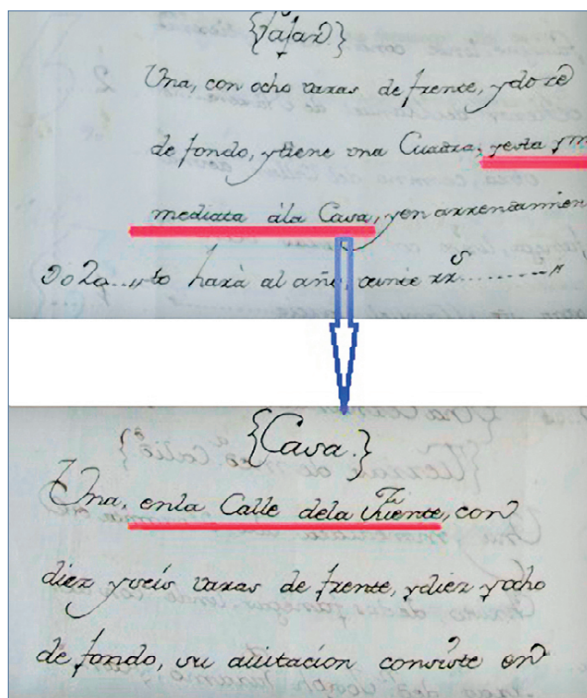 {Pajar}
Una, con ocho varas de frente, y doze
de fondo, y tiene una Cuadra, y esta ym
mediata á la Casa, y en arrendamien
to hará al año, veinte rrs
{Casa}
Una, en la Calle de la Fuente, con
diez y seis varas de frente, y diez y ocho
de fondo, su avitacion consiste en